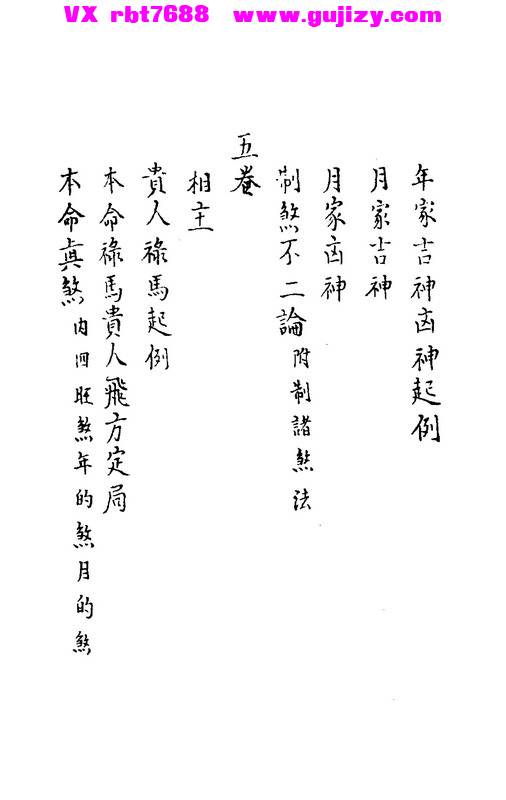 VX rbt7688 www.gujizy.com
年家吉神凶神起例
月家吉神
月家凶神
制煞不二論 附制諸煞法
五卷
相主
貴人祿馬起例
本命祿馬貴人飛方定局
本命真煞 内回旺煞年的煞月的煞